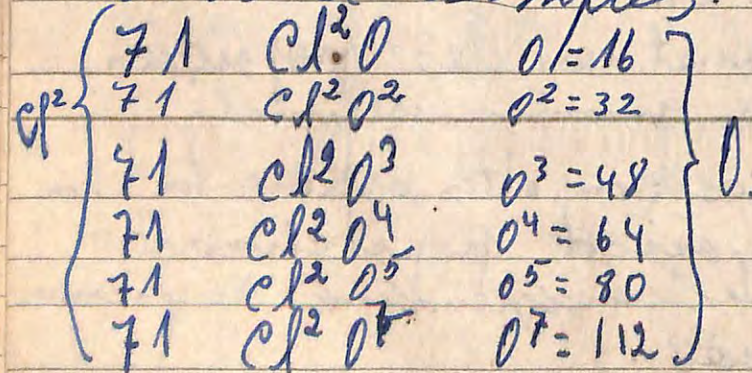 Cl² { 71 Cl²O O = 16 } O.
71 Cl²O² O² = 32
71 Cl²O³ O³ = 48
71 Cl²O⁴ O⁴ = 64
71 Cl²O⁵ O⁵ = 80
71 Cl²O⁷ O⁷ = 112